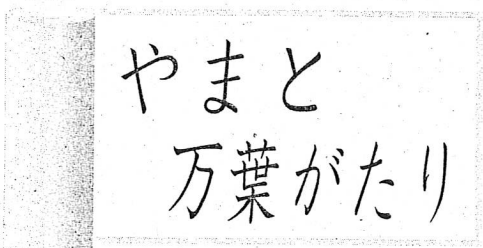 やまと
万葉がたり